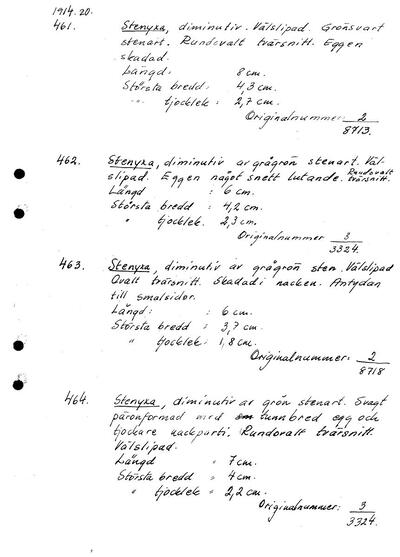 1914.20.
461. Stenyxa, diminutiv. Välslipad. Grönsvart
stenart. Rundovalt tvärsnitt. Eggen
skadad.
Längd: 8 cm.
Största bredd: 4,3 cm.
" tjocklek: 2,7 cm.
Originalnummer: 2
8713.
462. Stenyxa, diminutiv av grågrön stenart. Väl-
slipad. Eggen något snett lutande. Rundovalt
tvärsnitt.
Längd : 6 cm.
Största bredd : 4,2 cm.
" tjocklek. 2,3 cm.
Originalnummer 3
3324.
463. Stenyxa, diminutiv av grågrön sten. Välslipad
Ovalt tvärsnitt. Skadad i nacken. Antydan
till smalsidor.
Längd: : 6 cm.
Största bredd : 3,7 cm.
" tjocklek: 1,8 cm.
Originalnummer: 2
8718
464. Stenyxa, diminutiv av grön stenart. Svagt
päronformad med tunnbred egg och
tjockare nackparti. Rundovalt tvärsnitt.
Välslipad.
Längd " 7 cm.
Största bredd " 4 cm.
" tjocklek " 2,2 cm.
Originalnummer: 3
3324.